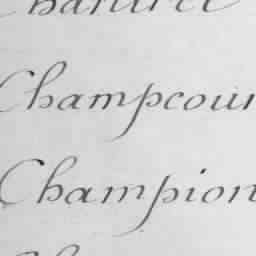 Champcour
Champion